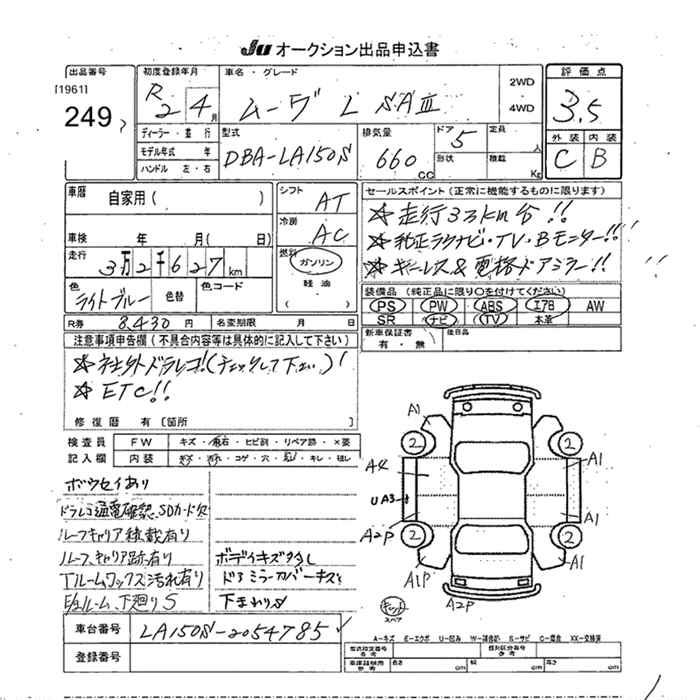 Ju オークション出品申込書
出品番号
[1961]
249
初度登録年月
R2 4月
車名・グレード
ムーヴ L SAⅢ
2WD
4WD
評価点
3.5
外装 内装
C B
ディーラー・並行
モデル年式 年
ハンドル 左・右
型式
DBA-LA150S
排気量
660 cc
ドア 5
形状
定員 人
積載 Kg
車歴 自家用( )
車検 年 月( 日)
走行 3万2千627 km
色 ライトブルー
色替
色コード
シフト AT
冷房 AC
燃料 ガソリン
軽油
( )
セールスポイント(正常に機能するものに限ります)
☆走行3万km台!!
☆純正ナビ・TV・Bモニター!!
☆キーレス&電格ドアミラー!!
装備品(純正品に限り○を付けてください)
PS PW ABS エアB AW
SR ナビ TV 本革
新車保証書 有・無
後日品
R券 8,430円
名変期限 月 日
注意事項申告欄(不具合内容等は具体的に記入して下さい)
☆社外ドラレコ!(チェックして下さい)!
☆ETC!!
修復歴 有[箇所 ]
検査員
記入欄
FW キズ・飛石・ヒビ割・リペア跡・×要
内装 キズ・汚れ・コゲ・穴・スレ・キレ・他し
ボウセイあり
ドラレコ通電確認、SDカード欠
ルーフキャリア積載有り
ルーフキャリア跡有り
Tルームワックス汚れ有り
E/gルーム、下廻りS
ボディキズ多し
ドアミラーカバーキズ
下まわりS
車台番号 LA150S-2054785
登録番号
A1
2
2
A4
A1
UA3
A2P
A1
2
2
A1P
A1
A2P
キット
スペア
A-キズ E-エクボ U-凹み W-補修跡 S-サビ C-腐蝕 XX-交換済
型式指定番号
類別区分番号
長さ cm 幅 cm 高さ cm